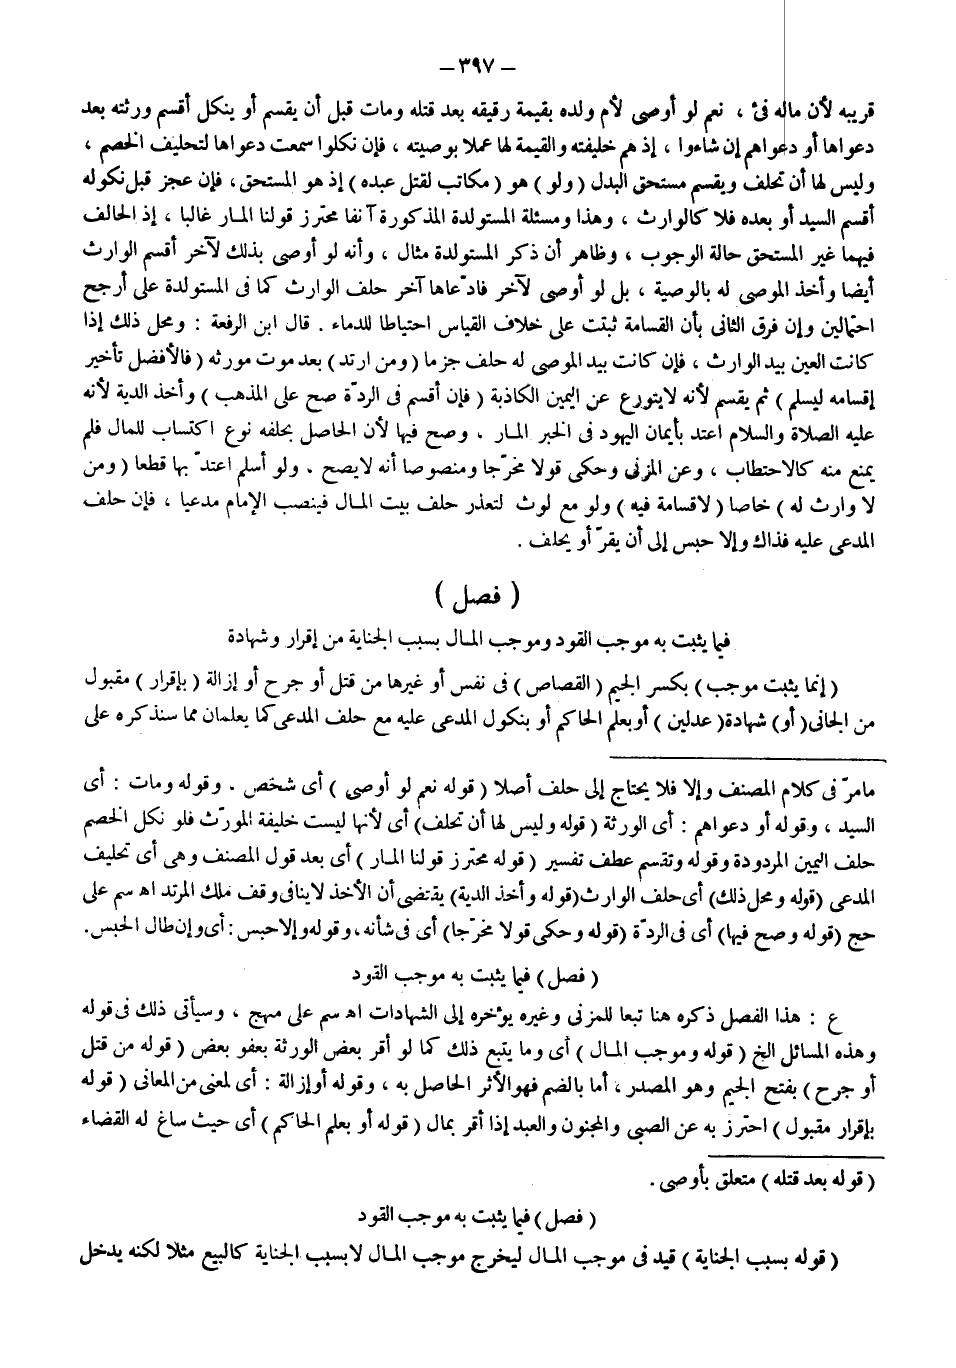 – ٣٩٧ –
قريبه لأن ماله فئ ، نعم لو أوصى لأم ولده بقيمة رقيقه بعد قتله ومات قبل أن يقسم أو ينكل أقسم ورثته بعد
دعواها أو دعواهم إن شاءوا ، إذ هم خليفته والقيمة لها عملا بوصيته ، فإن نكلوا سمعت دعواها لتحليف الخصم ،
وليس لها أن تحلف ويقسم مستحق البدل (ولو) هو (مكاتب لقتل عبده) إذ هو المستحق، فإن عجز قبل نكوله
أقسم السيد أو بعده فلا كالوارث ، وهذا ومسئلة المستولدة المذكورة آنفا محترز قولنا المار غالبا ، إذ الحالف
فيهما غير المستحق حالة الوجوب ، وظاهر أن ذكر المستولدة مثال ، وأنه لو أوصى بذلك لآخر أقسم الوارث
أيضا وأخذ الموصى له بالوصية ، بل لو أوصى لآخر فادّعاها آخر حلف الوارث كما فى المستولدة على أرجح
احتمالين وإن فرق الثانى بأن القسامة ثبتت على خلاف القياس احتياطا للدماء . قال ابن الرفعة : ومحل ذلك إذا
كانت العين بيد الوارث ، فإن كانت بيد الموصى له حلف جزما (ومن ارتد) بعد موت مورثه (فالأفضل تأخير
إقسامه ليسلم) ثم يقسم لأنه لايتورع عن اليمين الكاذبة (فإن أقسم فى الردّة صح على المذهب) وأخذ الدية لأنه
عليه الصلاة والسلام اعتد بأيمان اليهود فى الخبر المار . وصح فيها لأن الحاصل بحلفه نوع اكتساب للمال فلم
يمنع منه كالاحتطاب ، وعن المزنى وحكى قولا مخرّجا ومنصوصا أنه لايصح . ولو أسلم اعتدّ بها قطعا (ومن
لا وارث له) خاصا (لاقسامة فيه) ولو مع لوث لتعذر حلف بيت المال فينصب الإمام مدعيا ، فإن حلف
المدعى عليه فذاك وإلا حبس إلى أن يقرّ أو يحلف .
( فصل )
فيما يثبت به موجب القود وموجب المال بسبب الجناية من إقرار وشهادة
(إنما يثبت موجب) بكسر الجيم (القصاص) فى نفس أو غيرها من قتل أو جرح أو إزالة (بإقرار) مقبول
من الجانى (أو) شهادة (عدلين) أو بعلم الحاكم أو بنكول المدعى عليه مع حلف المدعى كما يعلمان مما سنذكره على
مامرّ فى كلام المصنف وإلا فلا يحتاج إلى حلف أصلا (قوله نعم لو أوصى) أى شخص . وقوله ومات : أى
السيد ، وقوله أو دعواهم : أى الورثة (قوله وليس لها أن تحلف) أى لأنها ليست خليفة المورّث فلو نكل الخصم
حلف اليمين المردودة وقوله وتقسم عطف تفسير (قوله محترز قولنا المار) أى بعد قول المصنف وهى أى تحليف
المدعى (قوله ومحل ذلك) أى حلف الوارث (قوله وأخذ الدية) يقتضى أن الأخذ لاينافى وقف ملك المرتد اه سم على
حج (قوله وصح فيها) أى فى الردّة (قوله وحكى قولا مخرّجا) أى فى شأنه، وقوله وإلا حبس : أى وإن طال الحبس .
( فصل ) فيما يثبت به موجب القود
ع : هذا الفصل ذكره هنا تبعا للمزنى وغيره يؤخره إلى الشهادات اه سم على منهج ، وسيأتى ذلك فى قوله
وهذه المسائل الخ (قوله وموجب المال) أى وما يتبع ذلك كما لو أقر بعض الورثة بعفو بعض (قوله من قتل
أو جرح) بفتح الجيم وهو المصدر ، أما بالضم فهو الأثر الحاصل به ، وقوله أو إزالة : أى لمعنى من المعانى (قوله
بإقرار مقبول) احترز به عن الصبى والمجنون والعبد إذا أقر بمال (قوله أو بعلم الحاكم) أى حيث ساغ له القضاء
(قوله بعد قتله) متعلق بأوصى .
( فصل ) فيما يثبت به موجب القود
(قوله بسبب الجناية) قيد فى موجب المال ليخرج موجب المال لابسبب الجناية كالبيع مثلا لكنه يدخل